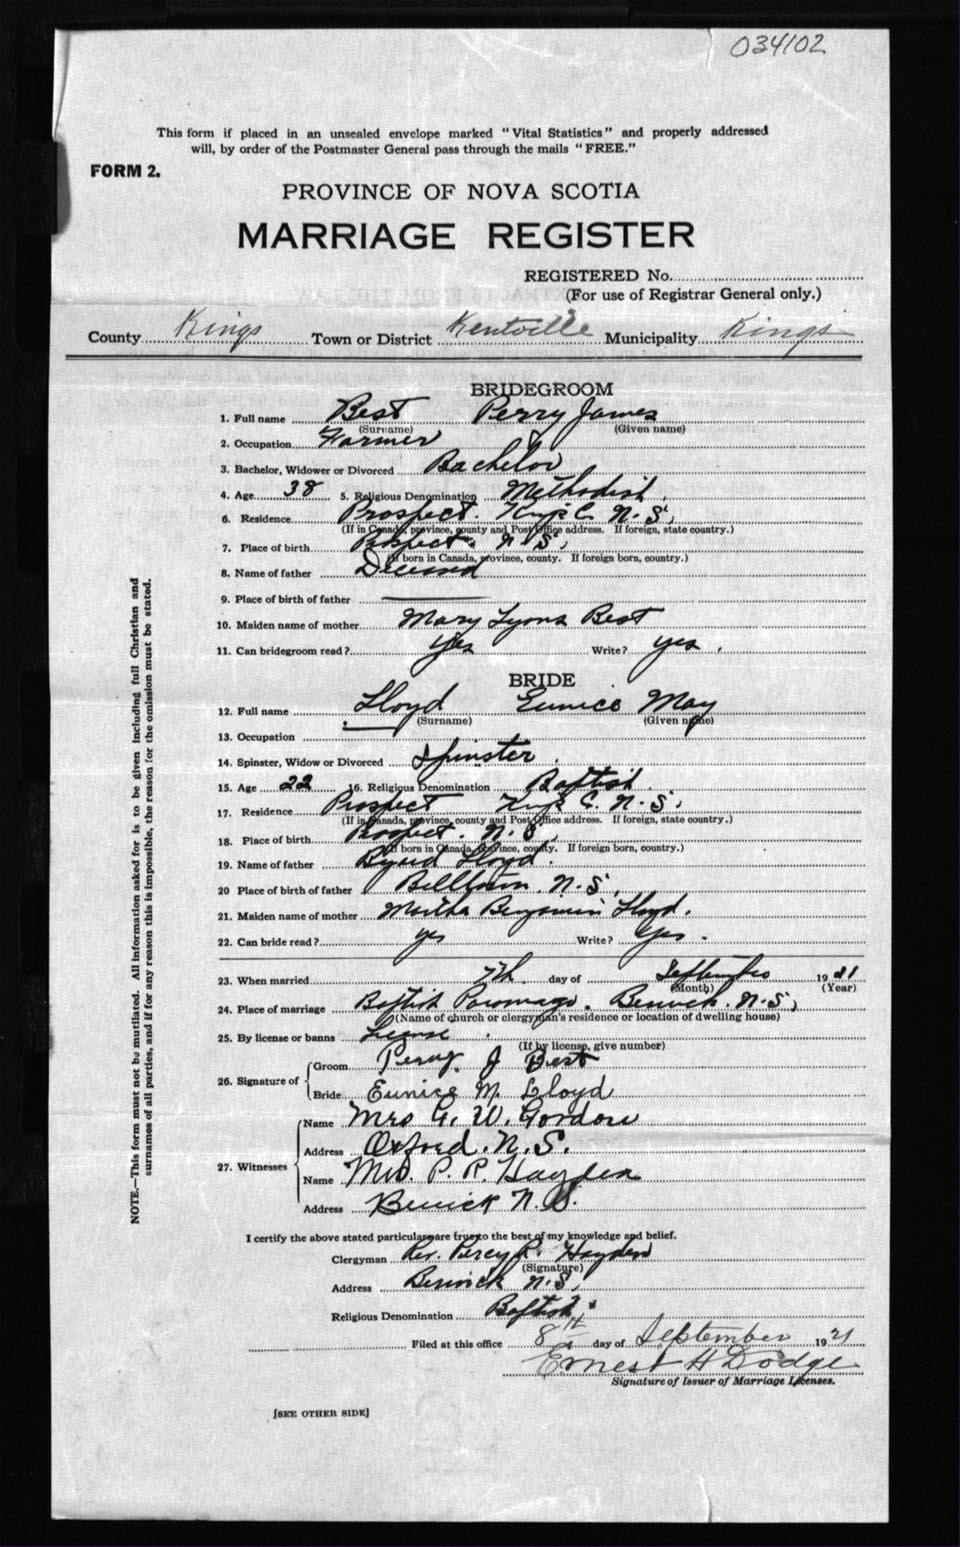 034102
This form if placed in an unsealed envelope marked "Vital Statistics" and properly addressed
will, by order of the Postmaster General pass through the mails "FREE."
FORM 2.
PROVINCE OF NOVA SCOTIA
MARRIAGE REGISTER
REGISTERED No.
(For use of Registrar General only.)
County Kings Town or District Kentville Municipality Kings
BRIDEGROOM
1. Full name Best Perry James
(Surname) (Given name)
2. Occupation Farmer
3. Bachelor, Widower or Divorced Bachelor
4. Age 38 5. Religious Denomination Methodist
6. Residence Prospect. Kings C. N.S.
(If in Canada, province, county and Post Office address. If foreign, state country.)
7. Place of birth Prospect. N.S.
(If born in Canada, province, county. If foreign born, country.)
8. Name of father Deceased
9. Place of birth of father
10. Maiden name of mother Mary Lyons Best
11. Can bridegroom read? Yes Write? yes.
BRIDE
12. Full name Lloyd Eunice May
(Surname) (Given name)
13. Occupation
14. Spinster, Widow or Divorced Spinster
15. Age 22 16. Religious Denomination Baptist.
17. Residence Prospect Kings C. N.S.
(If in Canada, province, county and Post Office address. If foreign, state country.)
18. Place of birth Prospect. N.S.
(If born in Canada, province, county. If foreign born, country.)
19. Name of father Lloyd.
20 Place of birth of father Billtown, N.S.
21. Maiden name of mother Martha Benjamin Lloyd.
22. Can bride read? yes Write? Yes.
23. When married 7th day of September 1921
(Month) (Year)
24. Place of marriage Baptist Parsonage. Berwick. N.S.
(Name of church or clergyman's residence or location of dwelling house)
25. By license or banns License
(If by license, give number)
26. Signature of
Groom Perry J Best
Bride Eunice M. Lloyd
27. Witnesses
Name Mrs G. W. Gordon
Address Oxford. N.S.
Name Mrs. P. R. Hayden
Address Berwick N.S.
I certify the above stated particulars are true to the best of my knowledge and belief.
Clergyman Rev. Percy R. Hayden
(Signature)
Address Berwick N.S.
Religious Denomination Baptist
Filed at this office 8th day of September 1921
Ernest H Dodge
Signature of Issuer of Marriage Licenses.
[SEE OTHER SIDE]
NOTE.—This form must not be mutilated. All information asked for is to be given including full Christian and
surnames of all parties, and if for any reason this is impossible, the reason for the omission must be stated.